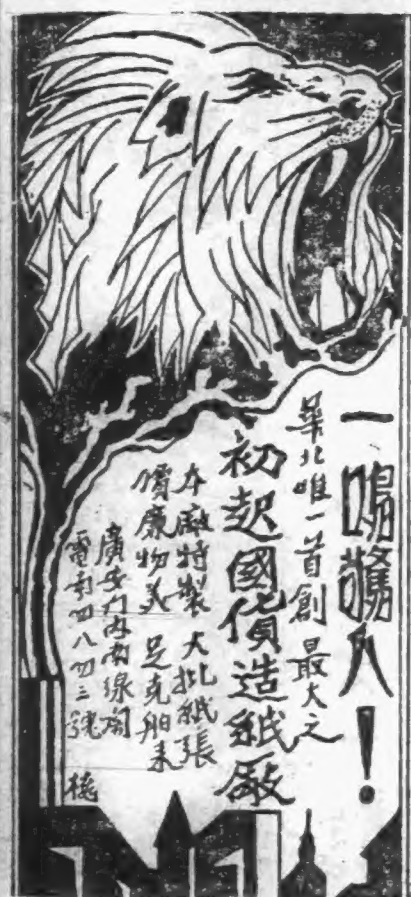 一鳴驚人！
華北唯一首創最大之
初起國貨造紙廠
本廠特製大批紙張
價廉物美 足克舶来
廣安门内南線阁
電南四八四三號